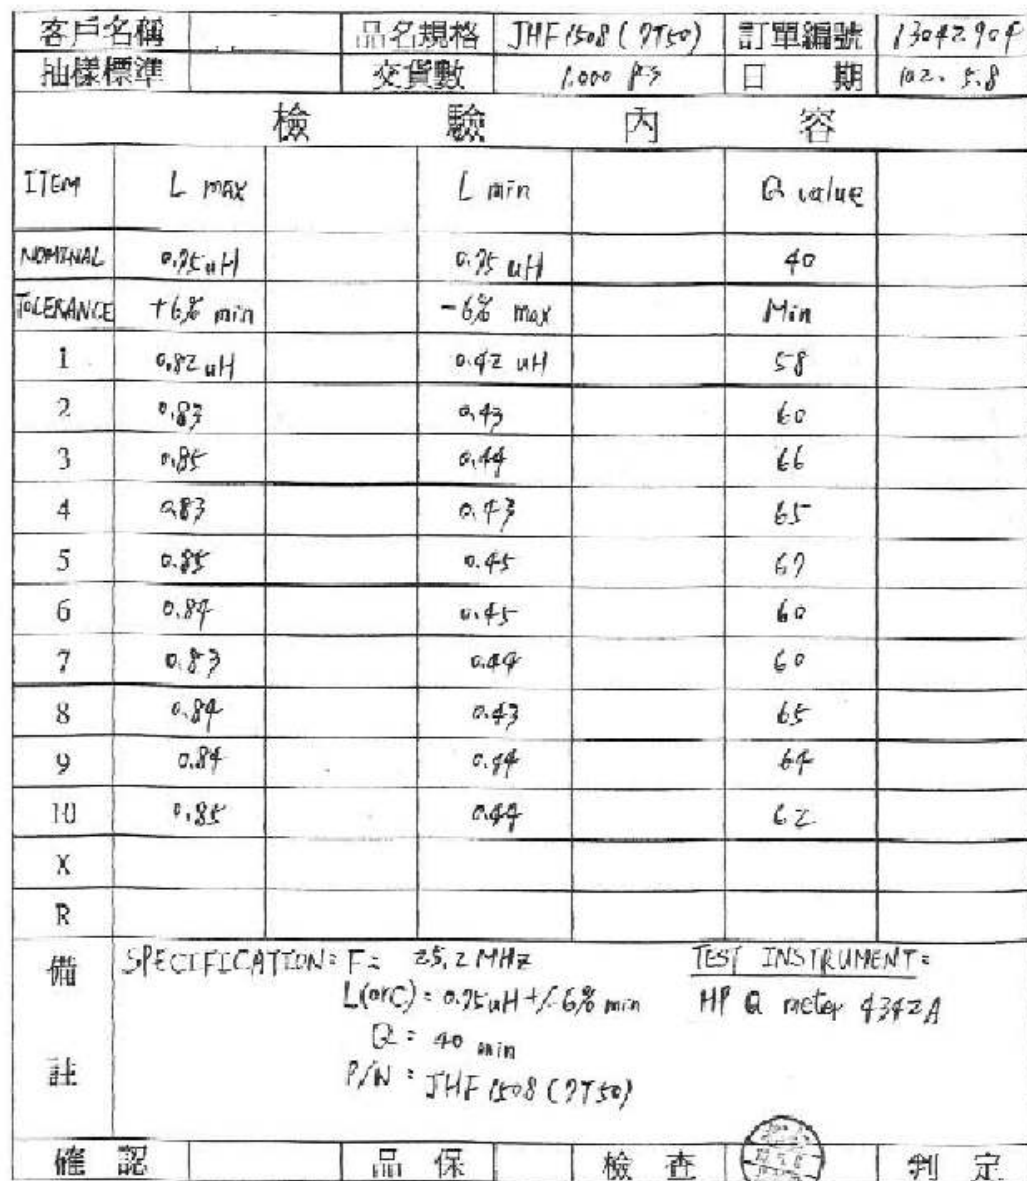 客戶名稱 品名規格 JHF1508 (7T50) 訂單編號 13042904
抽樣標準 交貨數 1.000 PCS 日 期 102. 5.8
檢 驗 內 容
ITEM L max L min Q value
NOMINAL 0.75uH 0.75 uH 40
TOLERANCE +6% min -6% max Min
1 0.82 uH 0.42 uH 58
2 0.83 0.43 60
3 0.85 0.44 66
4 0.83 0.43 65
5 0.85 0.45 67
6 0.84 0.45 60
7 0.83 0.44 60
8 0.84 0.43 65
9 0.84 0.44 64
10 0.85 0.44 62
X
R
備註
SPECIFICATION: F= 25.2 MHz
L(orC): 0.75uH +/-6% min
Q: 40 min
P/N: JHF1508 (7T50)
TEST INSTRUMENT:
HP Q meter 4342A
確 認 品 保 檢 查 判 定